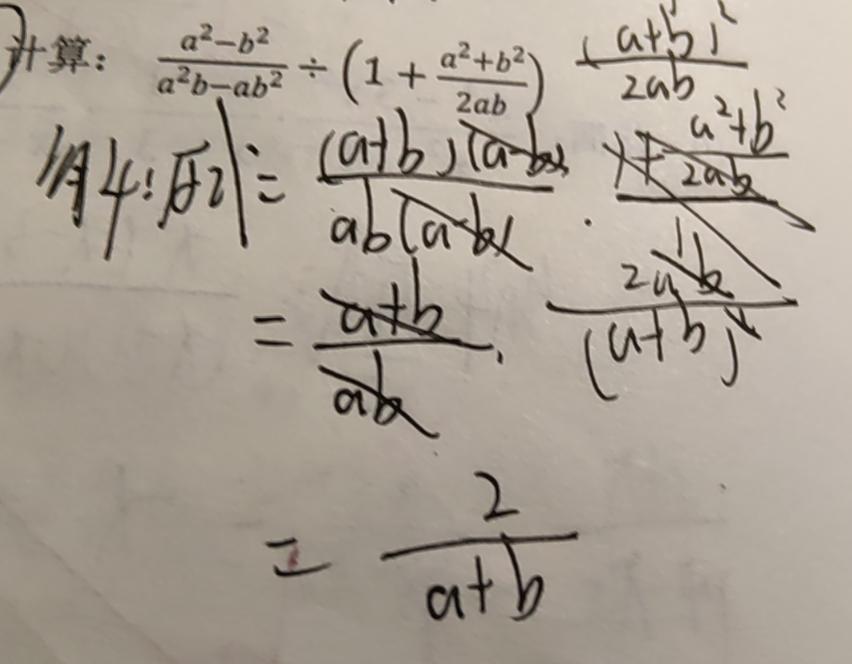 计算: \frac{a²-b²}{a²b-ab²} ÷ (1 + \frac{a²+b²}{2ab}) \frac{(a+b)²}{2ab}
解: 原式 = \frac{(a+b)(a-b)}{ab(a-b)} · \frac{1+\frac{a²+b²}{2ab}}{1}
= \frac{a+b}{ab} · \frac{2ab}{(a+b)²}
= \frac{2}{a+b}